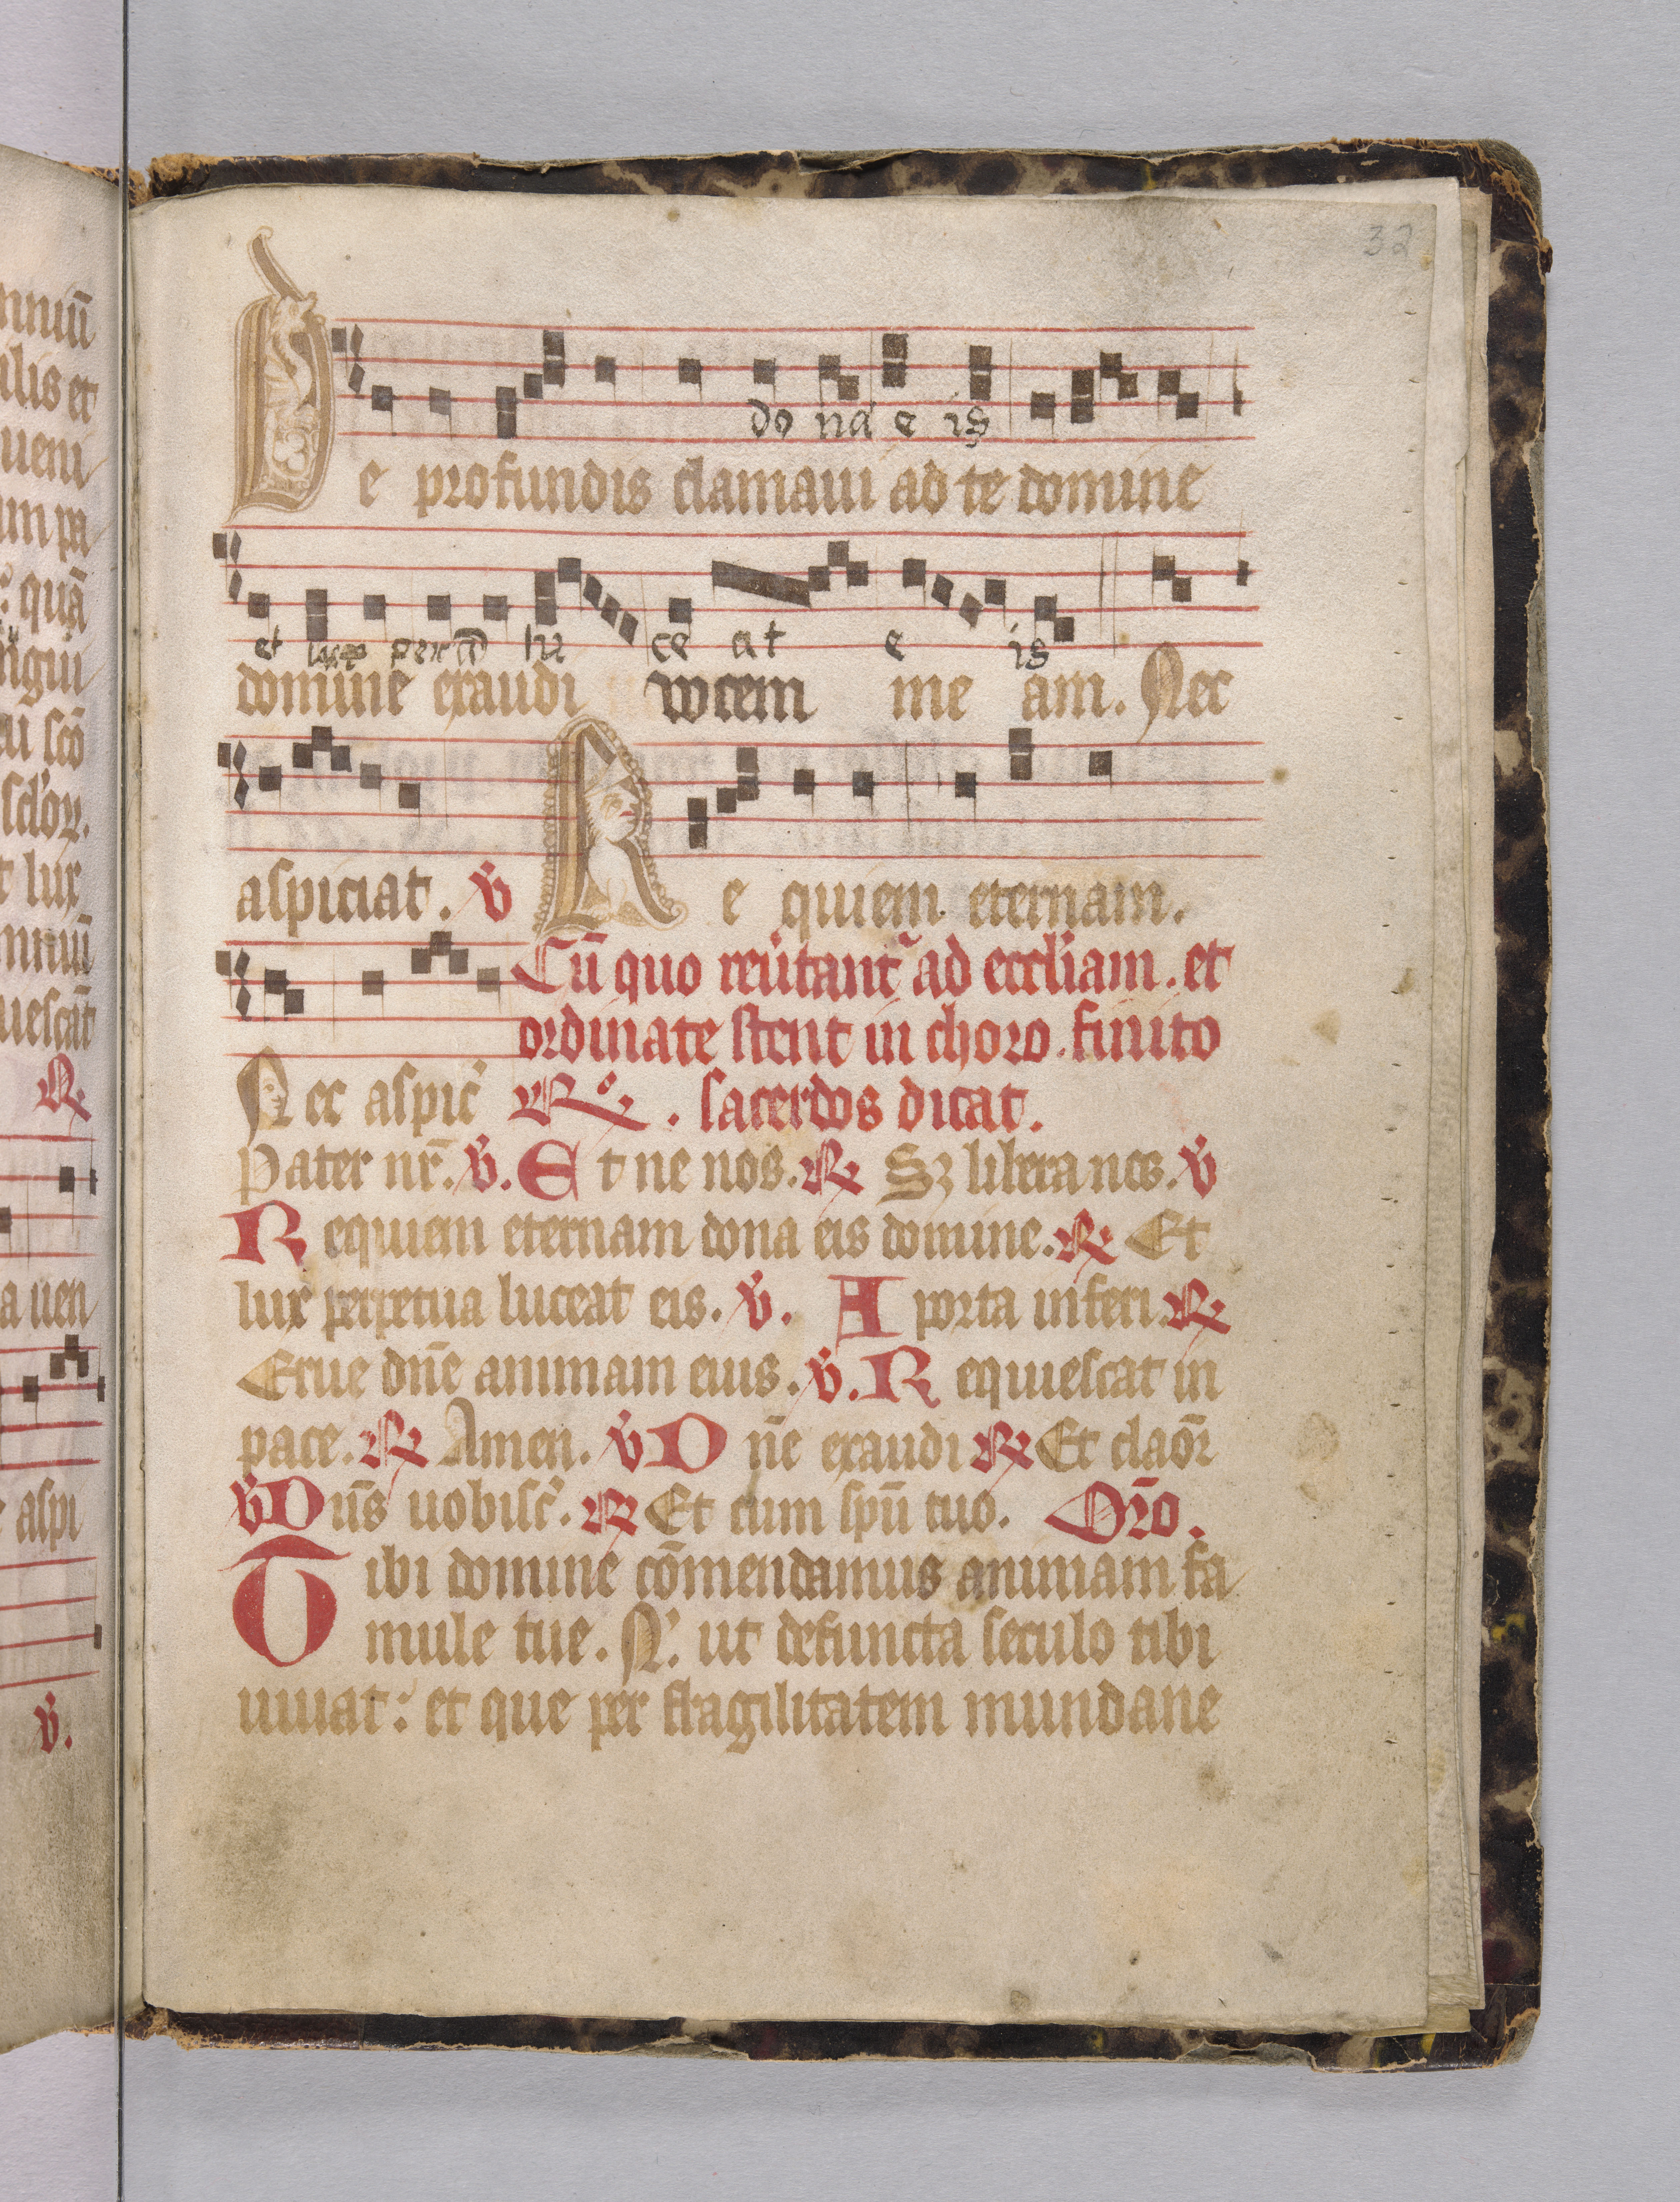 32
do na e is
De profundis clamaui ad te domine
et lux perpetua lu ce at e is
domine exaudi uocem me am. Nec
aspiciat. v̄ Re quiem eternam.
Cū quo reũtant᷑ ad eccliam. et
ordinate stent in choro. finito
Nec aspic̄ ℟. sacerdos dicat.
Pater nr̄. v̄. Et ne nos. ℟ Sꝫ libera nos. v̄
Requiem eternam dona eis domine. ℟ Et
lux perpetua luceat eis. v̄. A porta inferi. ℟
Erue dn̄e animam eius. v̄. Requiescat in
pace. ℟ Amen. v̄ Dn̄e exaudi ℟ Et claōr
v̄ Dn̄s uobisc̄. ℟ Et cum spū tuo. Or̄o.
Tibi domine cōmendamus animam fa
mule tue. N. ut defuncta seculo tibi
uiuat: et que per fragilitatem mundane
nniū
ilis et
ueni
un pa
quā
ngui
eū scō
t lux
mniū
uescāt
℟
a uen
e aspi
v̄.